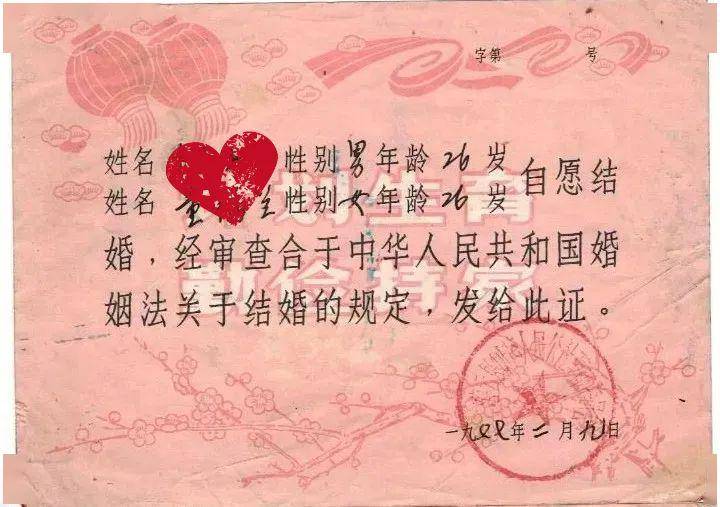 字第 号
姓名 性别男年龄26岁
姓名 性别女年龄26岁
自愿结
婚，经审查合于中华人民共和国婚
姻法关于结婚的规定，发给此证。
划生育
勤俭持家
一九七七年二月九日